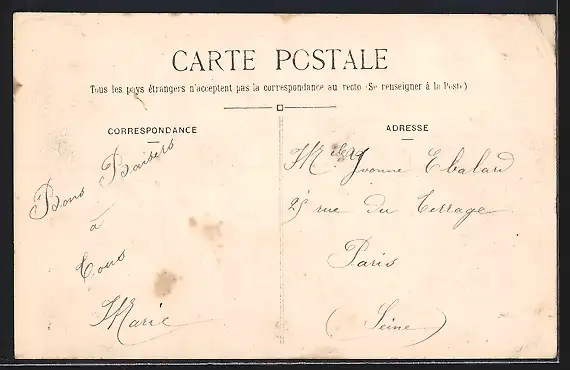 CARTE POSTALE
Tous les pays étrangers n'acceptent pas la correspondance au recto (Se renseigner à la Poste)
CORRESPONDANCE
Bons Baisers
à
Tous
Marie
ADRESSE
Mlle Yvonne Ebalard
25 rue du Terrage
Paris
(Seine)